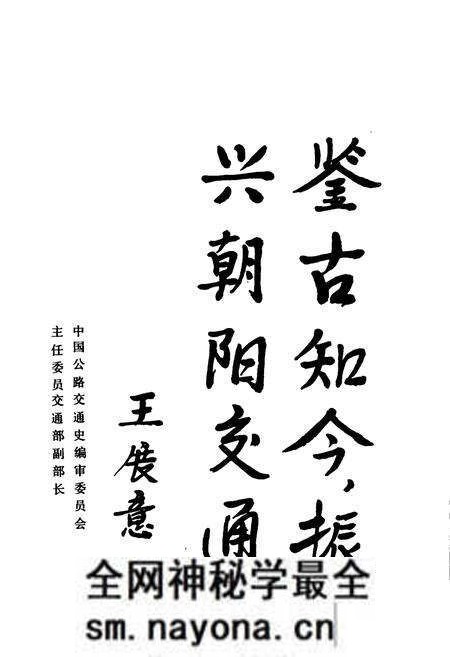 鉴古知今，振
兴朝阳交通
王展意
中国公路交通史编审委员会
主任委员交通部副部长
全网神秘学最全
sm.nayona.cn